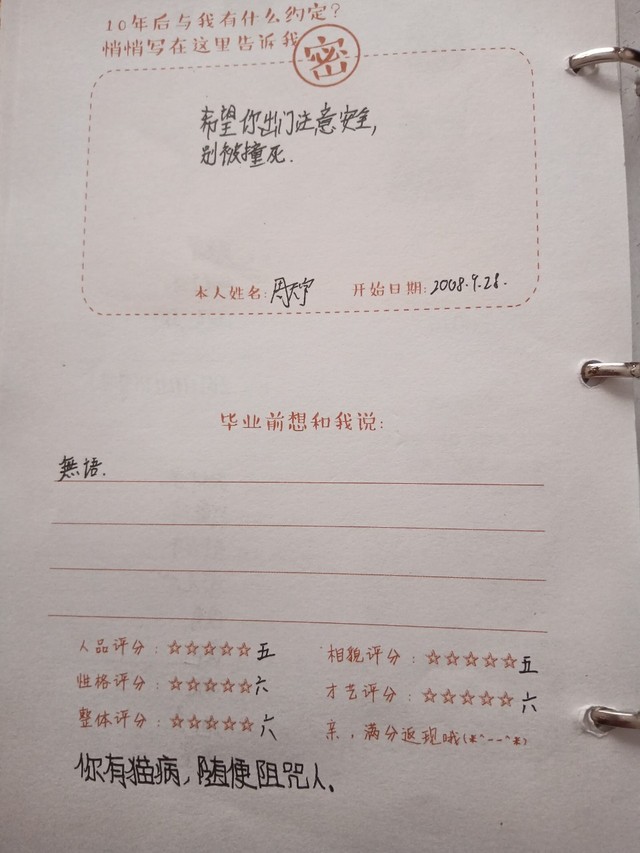 10年后与我有什么约定?
悄悄写在这里告诉我
密
希望你出门注意安全,
别被撞死.
本人姓名: 周天宇 开始日期: 2008.9.28.
毕业前想和我说:
無语.
人品评分: ☆☆☆☆☆五 相貌评分: ☆☆☆☆☆五
性格评分: ☆☆☆☆☆六 才艺评分: ☆☆☆☆☆六
整体评分: ☆☆☆☆☆六 亲,满分返现哦(*^--^*)
你有猫病,随便阻咒人.